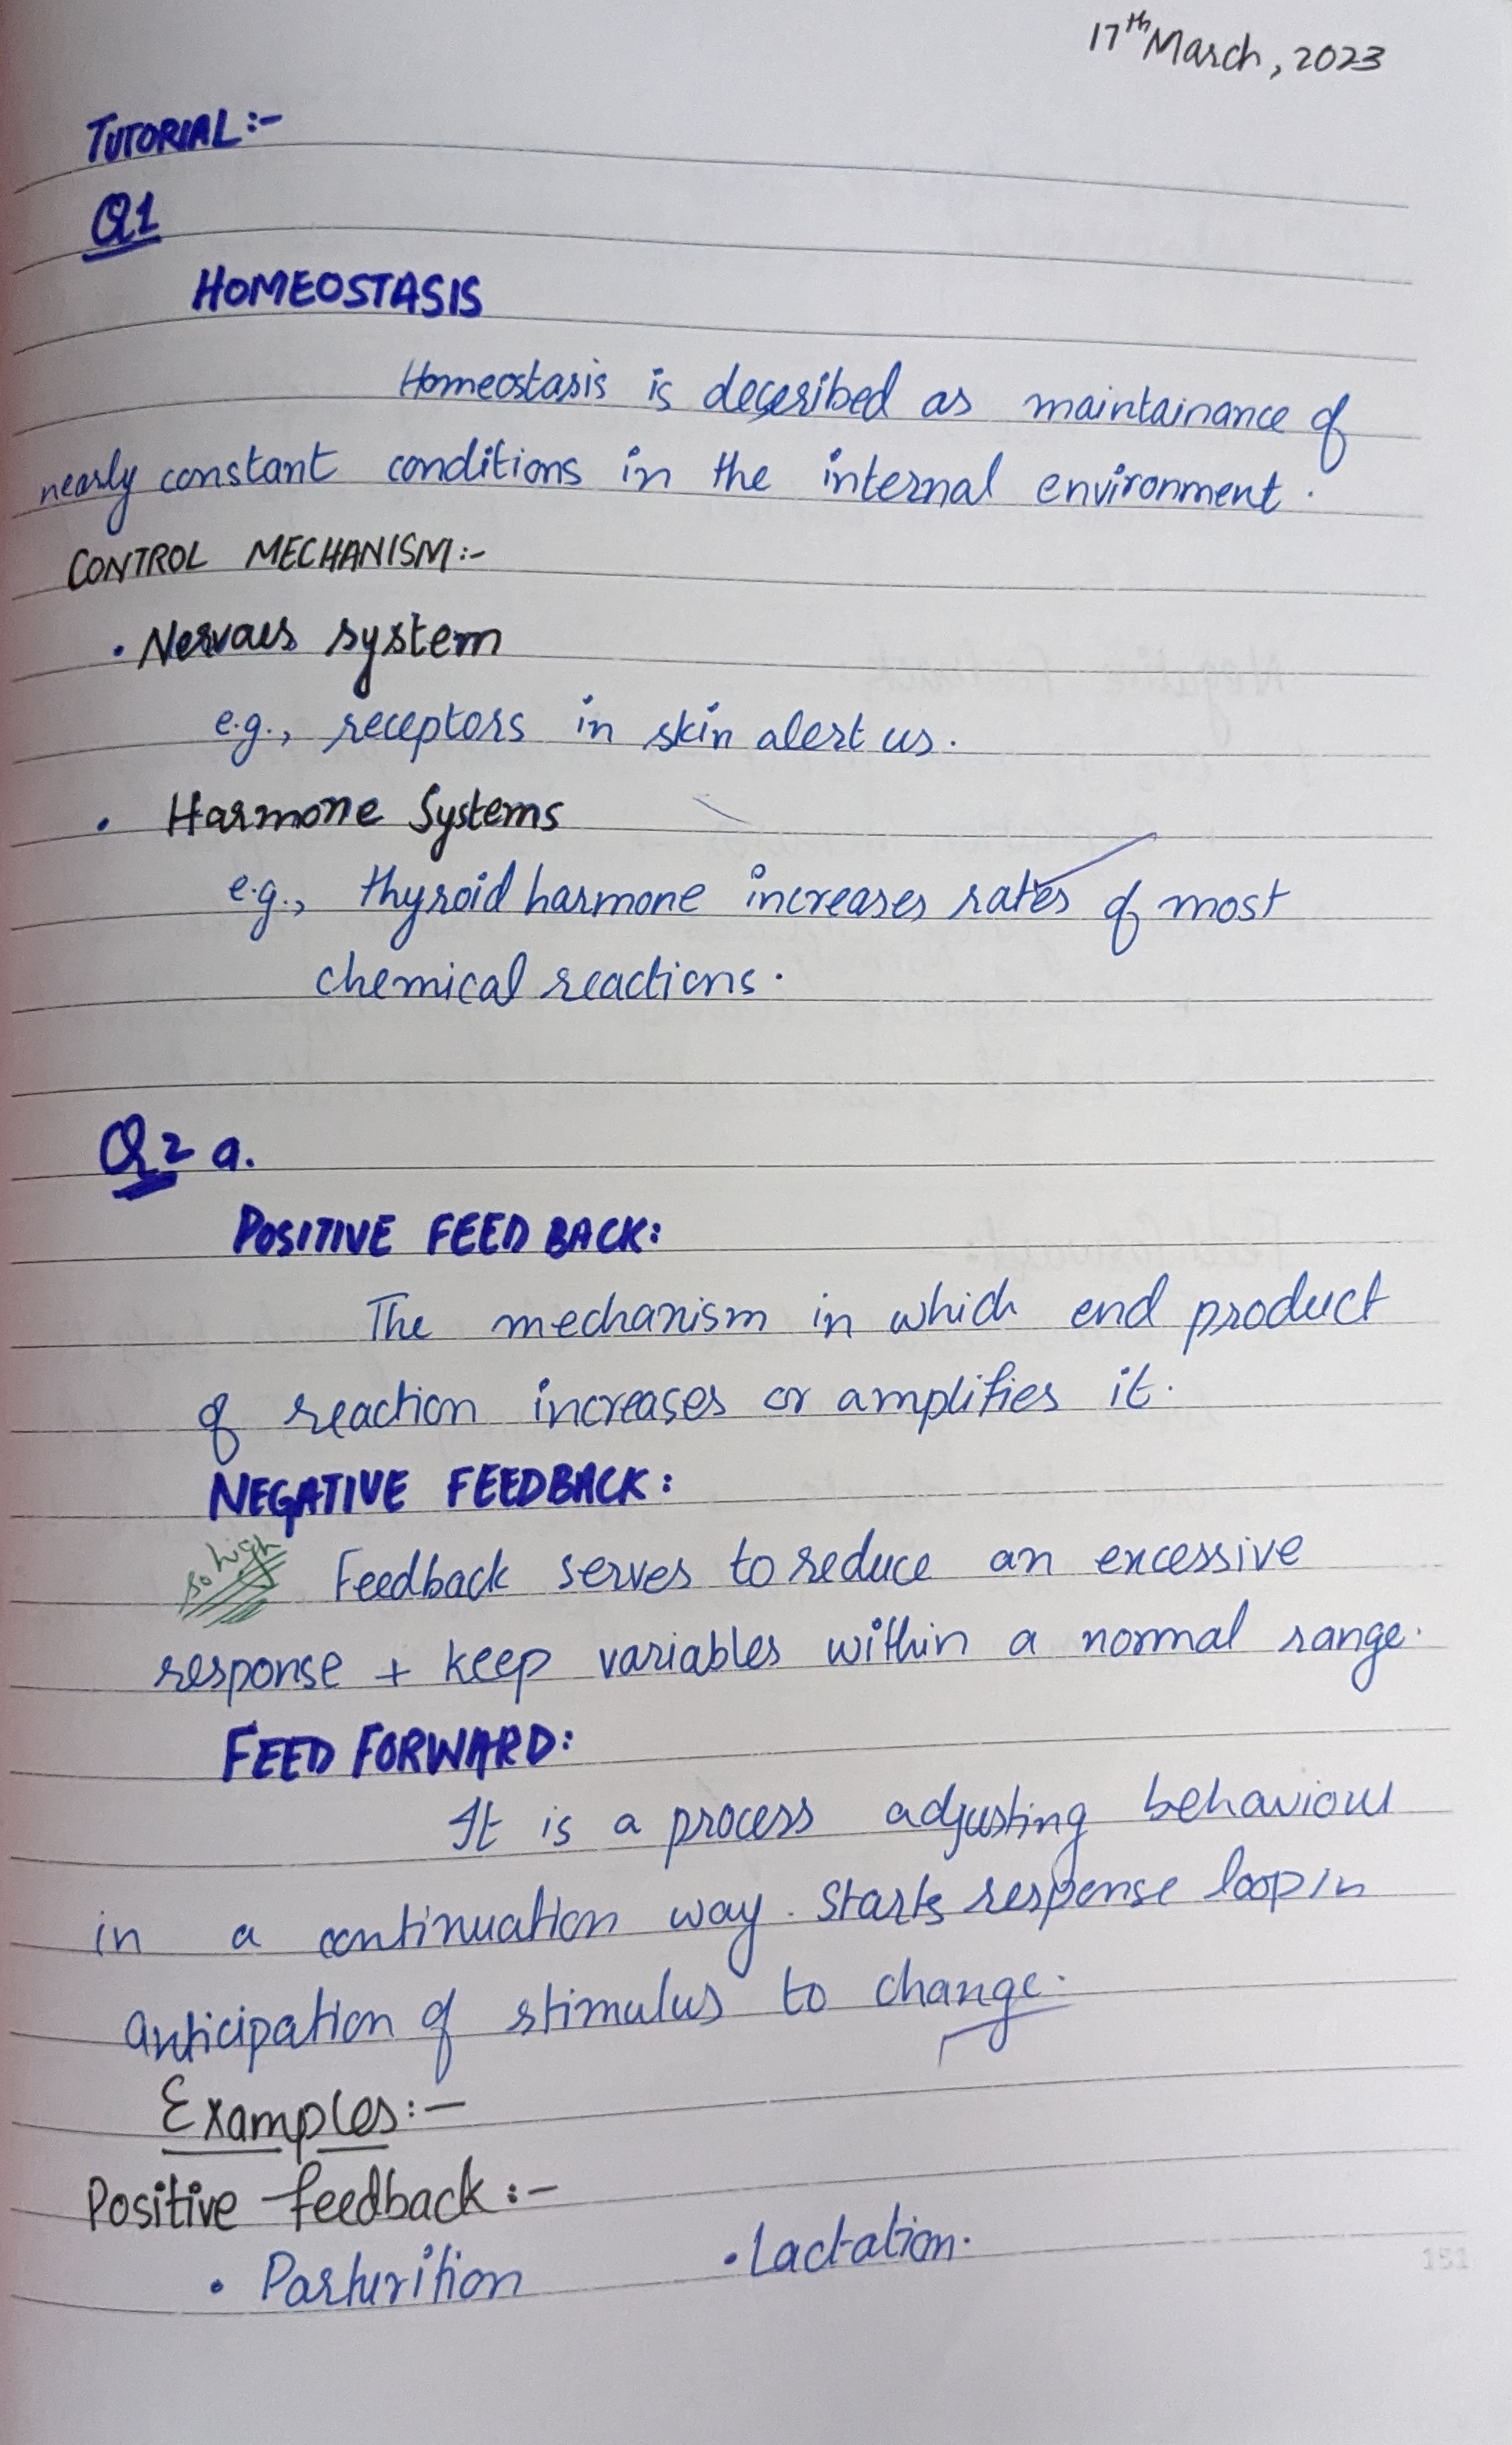 17th March, 2023
TUTORIAL:-
Q1
HOMEOSTASIS
Homeostasis is described as maintainance of
nearly constant conditions in the internal environment.
CONTROL MECHANISM:-
• Nervous system
e.g., receptors in skin alert us.
• Harmone Systems
e.g., thyroid harmone increases rates of most
chemical reactions.
Q2 a.
POSITIVE FEED BACK:
The mechanism in which end product
of reaction increases or amplifies it.
NEGATIVE FEEDBACK:
Feedback serves to reduce an excessive
response + keep variables within a normal range.
FEED FORWARD:
It is a process adjusting behaviour
in a continuation way. Starts response loop in
anticipation of stimulus to change.
Examples:-
Positive feedback:-
• Parturition • Lactation.
151